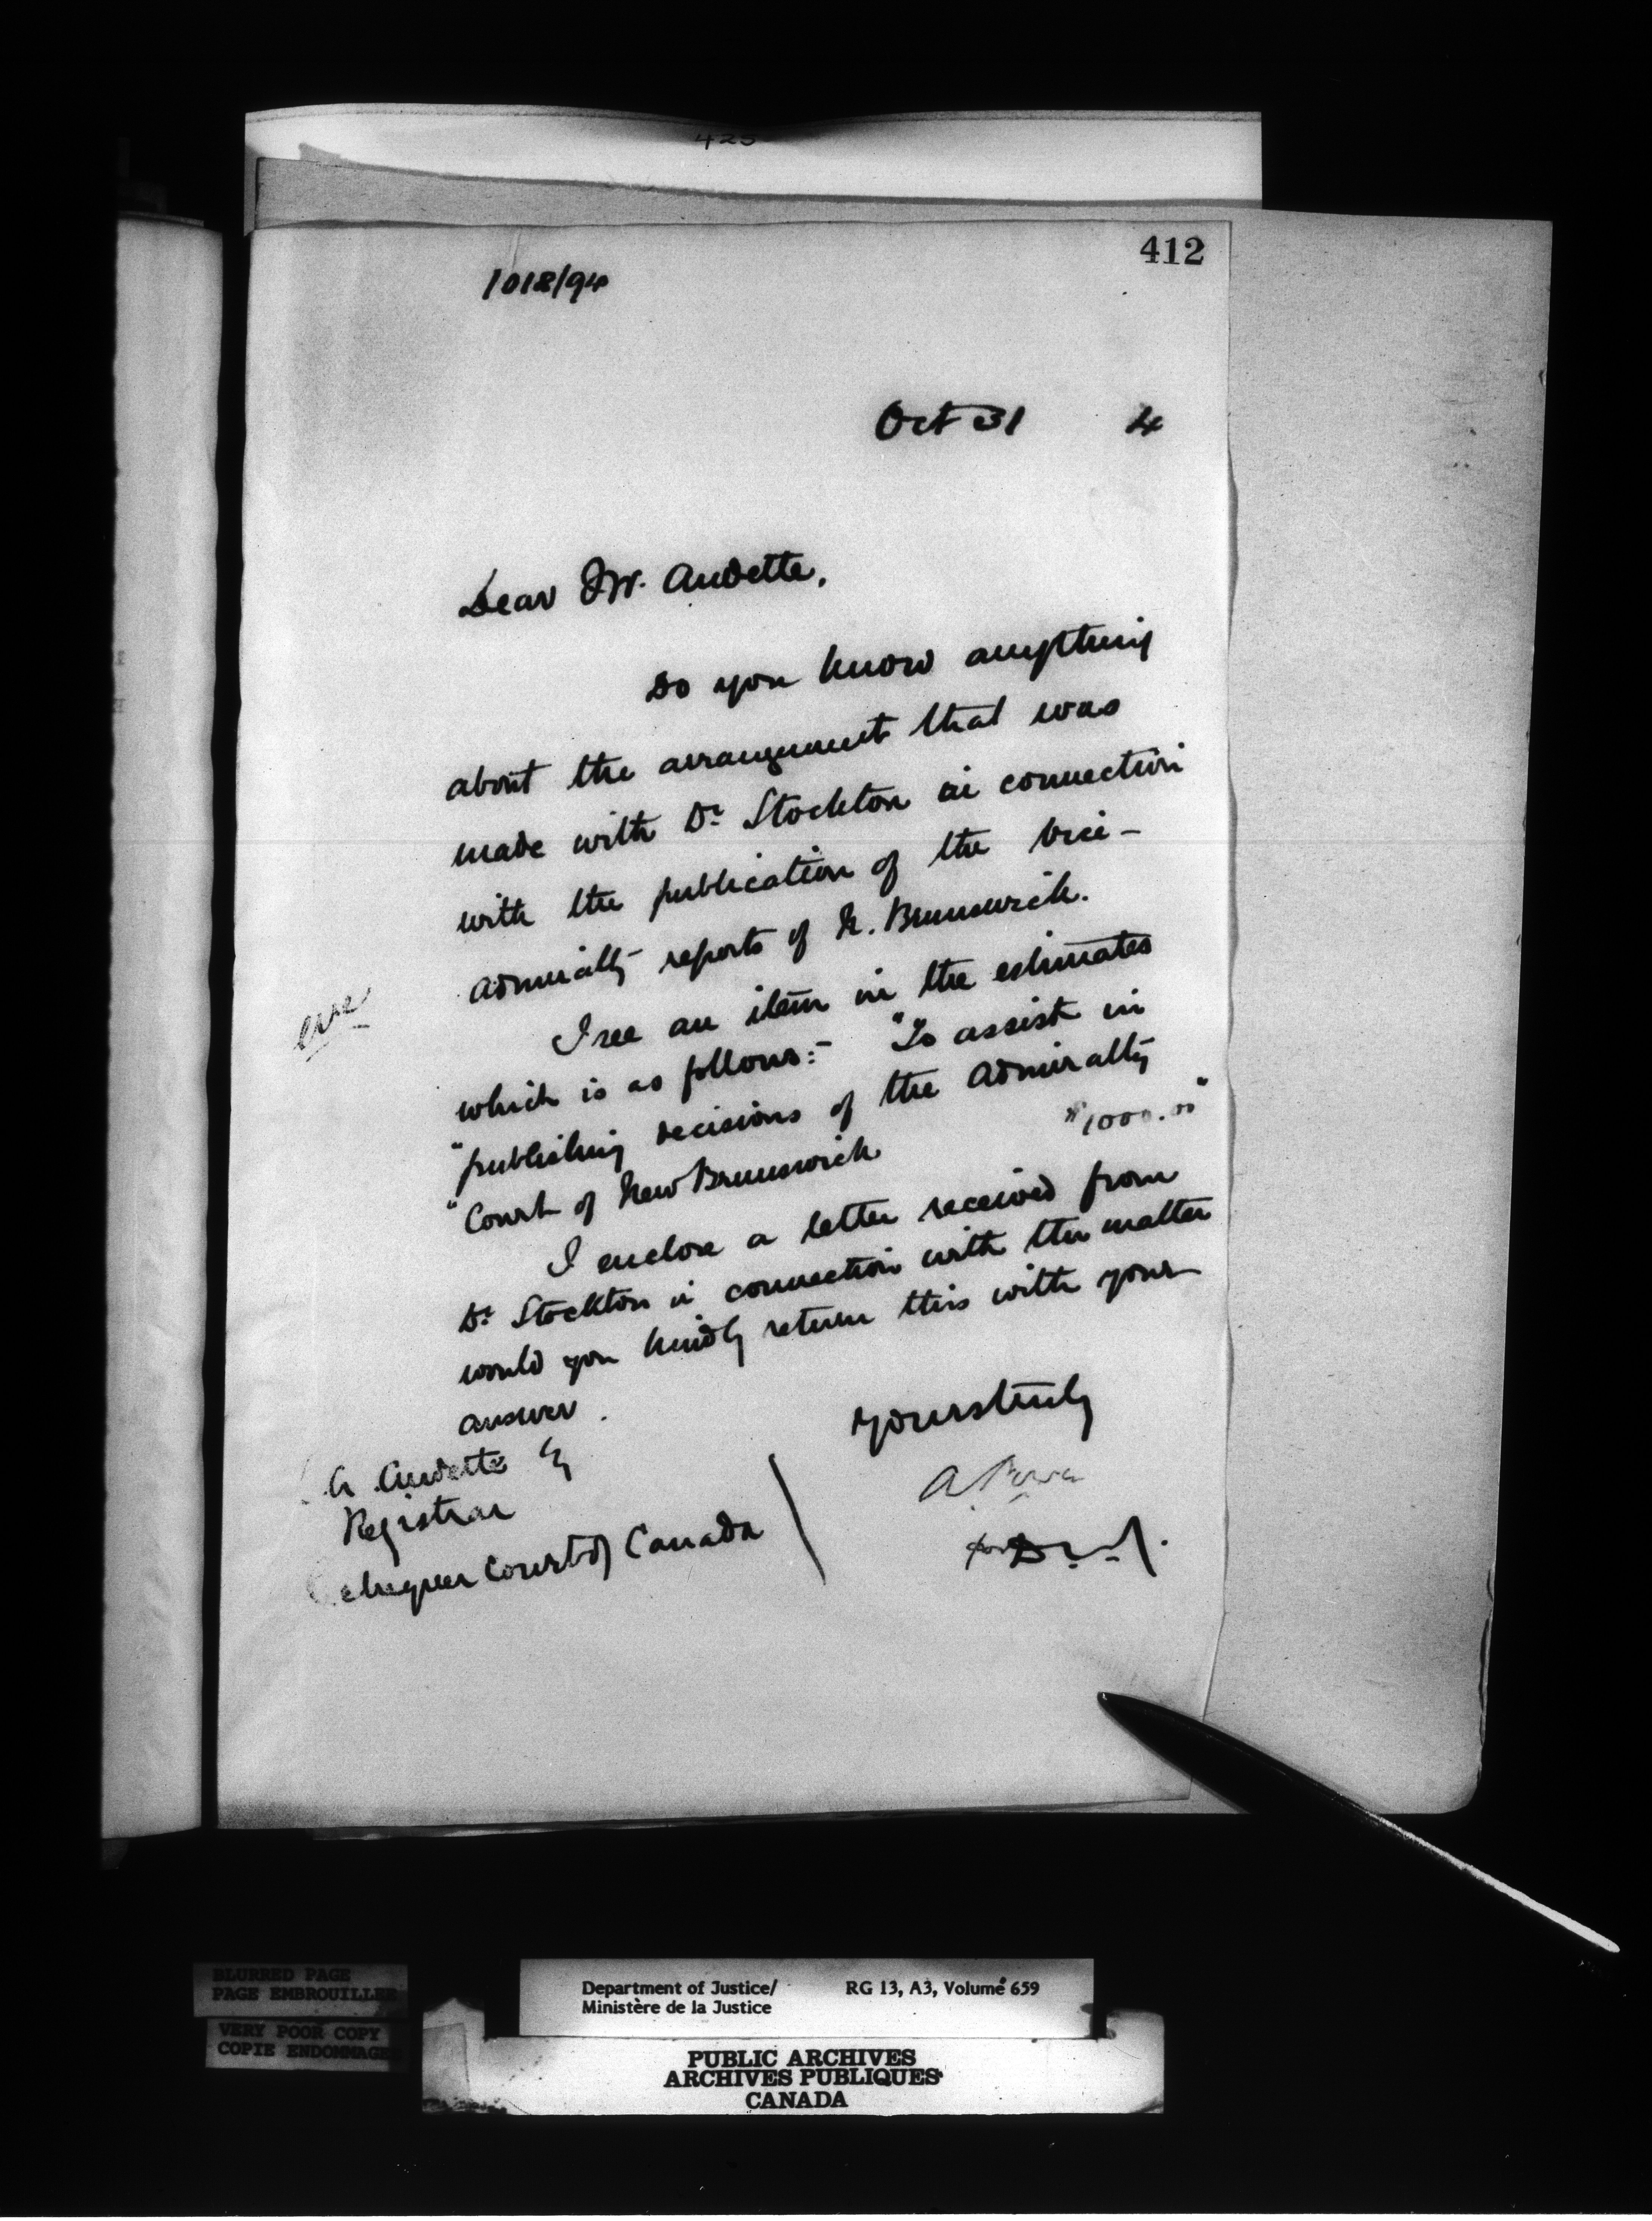 425
412
1018/94
Oct 31 4
Dear Mr. Audette,
Do you know anything
about the arrangement that was
made with Dr. Stockton in connection
with the publication of the Vice-
Admiralty reports of N. Brunswick.
I see an item in the estimates
which is as follows:- "To assist in
"publishing decisions of the Admiralty
"Court of New Brunswick $1000.00"
I enclose a letter received from
Dr. Stockton in connection with the matter
would you kindly return this with your
answer.
Yours truly
A. Power
for D.M.J.
A. Audette Esq
Registrar
chequer Court of Canada
BLURRED PAGE
PAGE EMBROUILLEE
VERY POOR COPY
COPIE ENDOMMAGE
Department of Justice/ RG 13, A3, Volume 659
Ministère de la Justice
PUBLIC ARCHIVES
ARCHIVES PUBLIQUES
CANADA